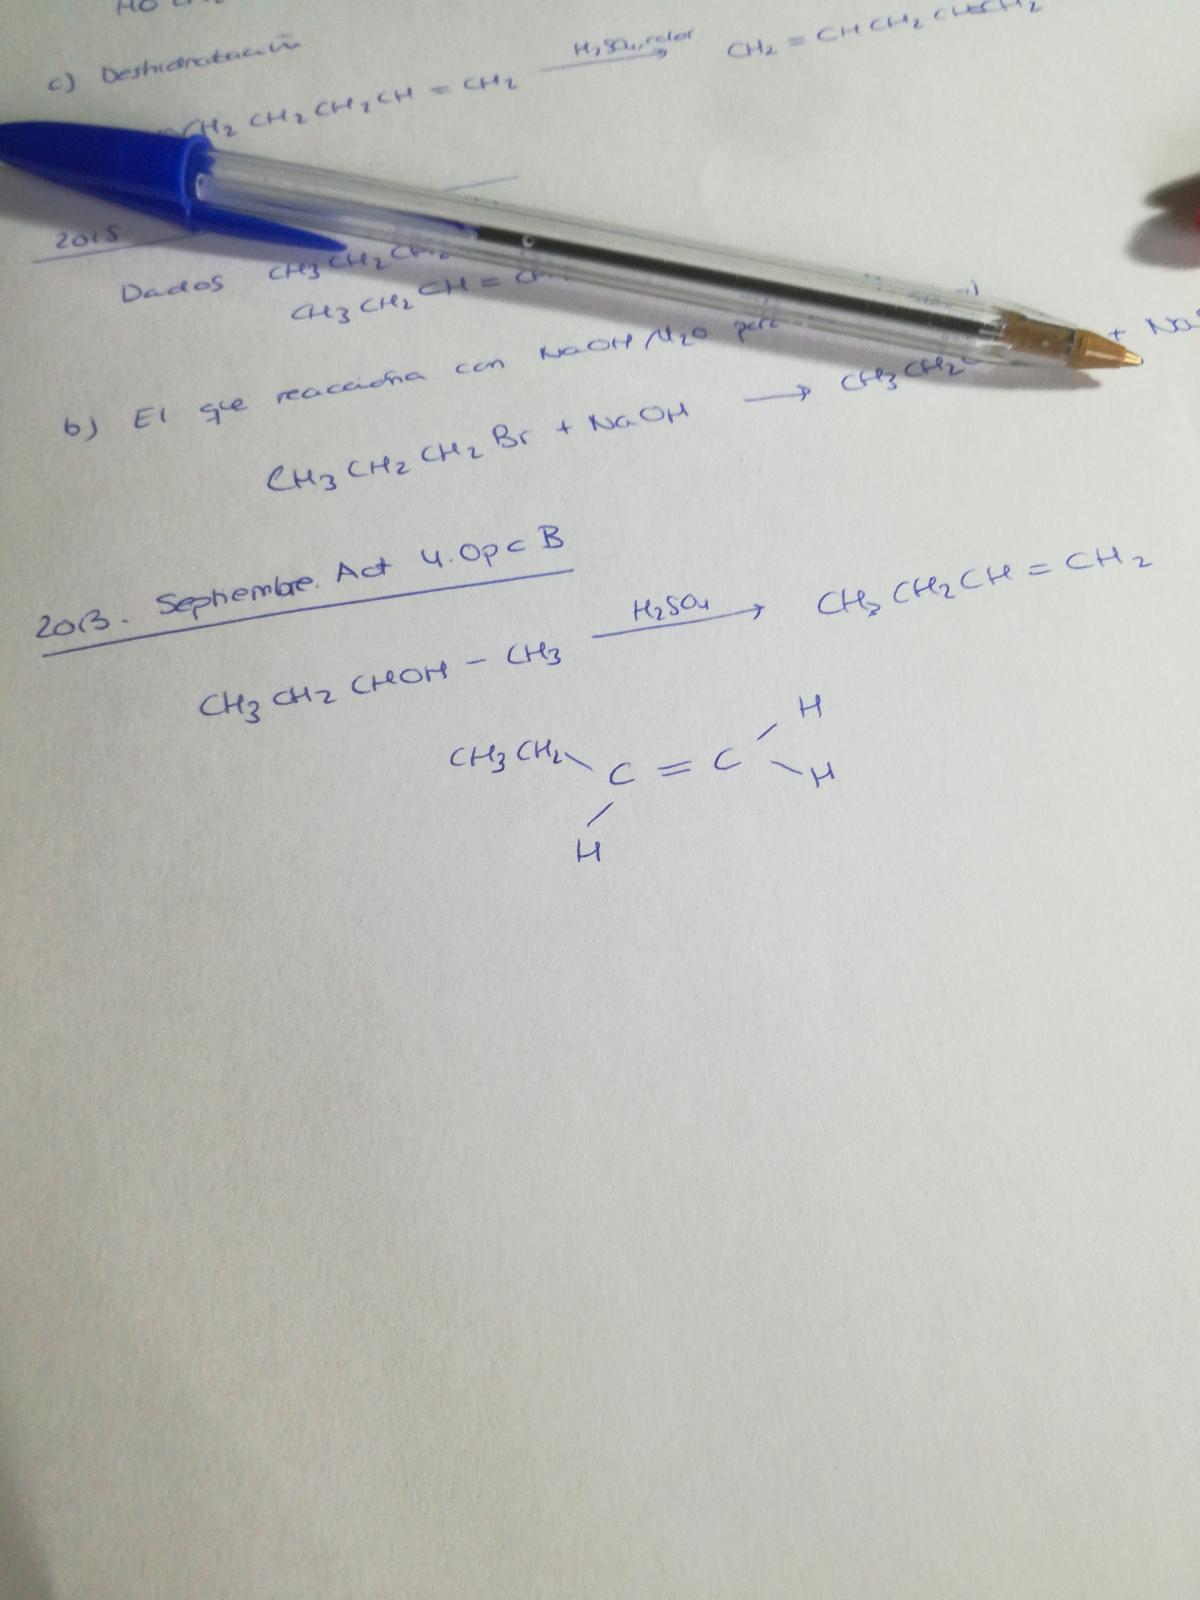 HO
c) Deshidratación
CH2 CH2 CH2 CH = CH2 H2SO4, calor → CH2 = CH CH2 CH=CH2
2015
Dados CH3 CH2 CH2
CH3 CH2 CH =
b) El que reacciona con NaOH/H2O para
CH3 CH2 CH2 Br + NaOH → CH3 CH2 + Na
2013. Septiembre. Act 4. Opc B
CH3 CH2 CHOH - CH3 H2SO4 → CH3 CH2 CH = CH2
CH3 CH2 \ C = C / H
H / \ H